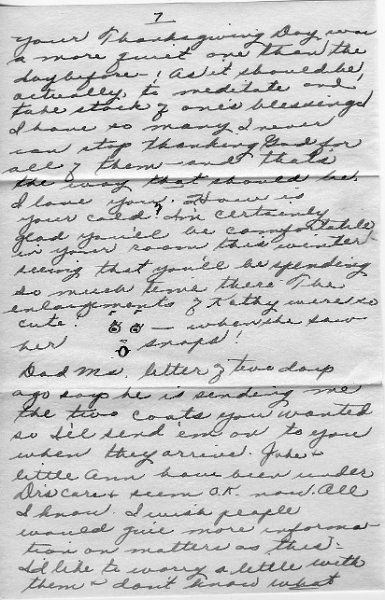 7
your Thanksgiving Day was
a more quiet one than the
day before -! As it should be,
actually to meditate and
take stock of one's blessings!
I have so many I never
can stop thanking God for
all of them - and that's
the way that should be.
I love you! How is
your cold? I'm certainly
glad you'll be comfortable
in your room this winter -
seeing that you'll be spending
so much time there. The
enlargements of Kathy were so
cute! - when she saw
her snaps!
Dad Ma. letter of two days
ago says he is sending me
the two coats you wanted
so I'll send 'em on to you
when they arrive. Jake +
little Ann have been under
Dr's care + seem O.K. now. All
I know. I wish people
would give more informa-
tion on matters as this -
I'd like to worry a little with
them + don't know what